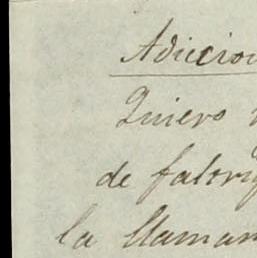 Adiccion
Quiero
de fabriq
la llaman